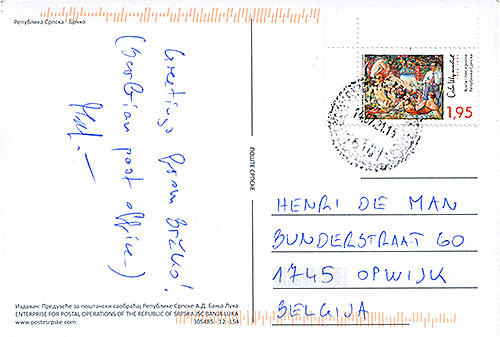 Република Српска - Брчко
Greetings from Brčko!
(Serbian post office)
Издавач: Предузеће за поштански саобраћај Републике Српске А.Д. Бања Лука
ENTERPRISE FOR POSTAL OPERATIONS OF THE REPUBLIC OF SRPSKA JSC BANJA LUKA
www.postesrpske.com 305485 12-154
ПОШТЕ СРПСКЕ
Босна и Херцеговина
Република Српска
1,95
76101
HENRI DE MAN
BUNDERSTRAAT 60
1745 OPWIJK
BELGIJA